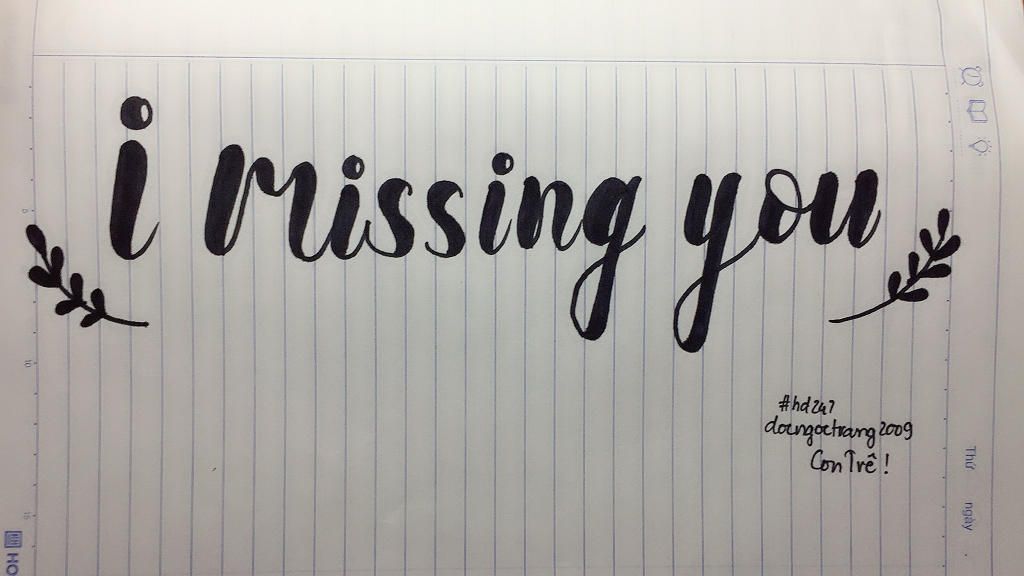 i missing you
#hd247
doengoctrang2009
Con Trê!
Thứ ngày
5
10
15
HO